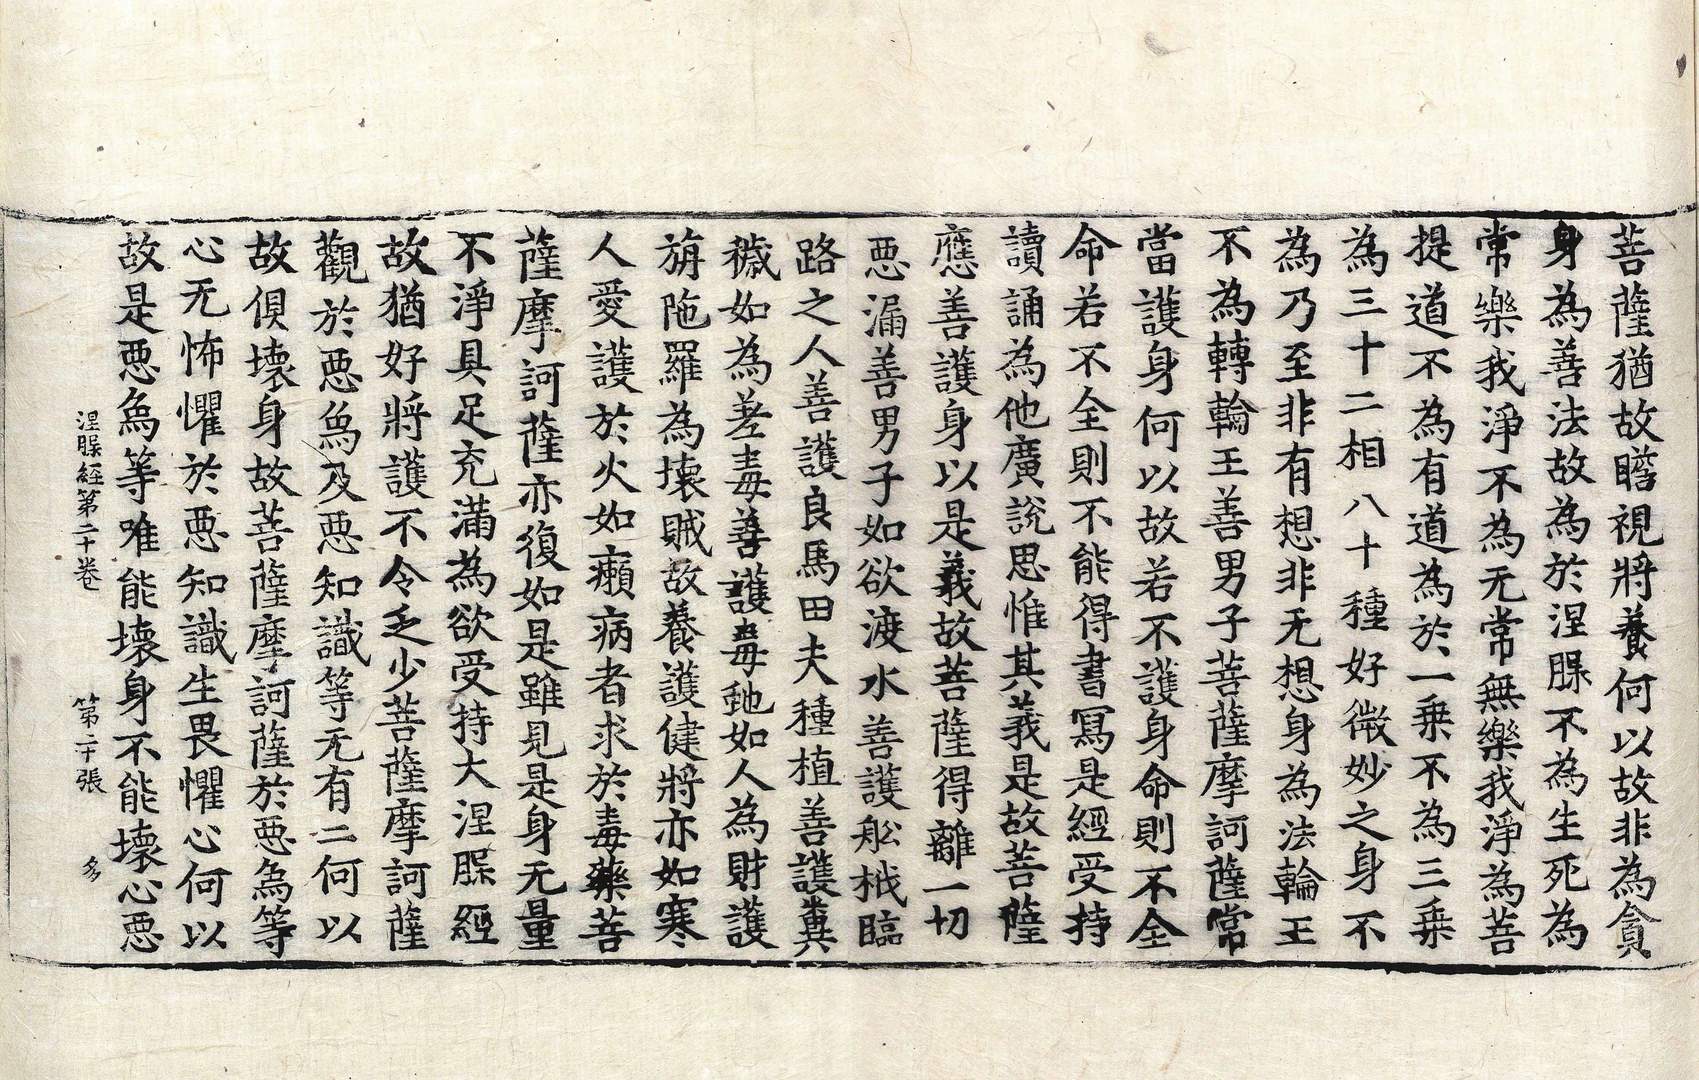 菩薩猶故瞻視將養何以故非為貪
身為善法故為於涅槃不為生死為
常樂我淨不為无常無樂我淨為菩
提道不為有道為於一乗不為三乗
為三十二相八十種好微妙之身不
為乃至非有想非无想身為法輪王
不為轉輪王善男子菩薩摩訶薩常
當護身何以故若不護身命則不全
命若不全則不能得書寫是經受持
讀誦為他廣說思惟其義是故菩薩
應善護身以是義故菩薩得離一切
惡漏善男子如欲渡水善護舩栰臨
路之人善護良馬田夫種植善護糞
穢如為差毒善護毒虵如人為財護
旃陁羅為壞賊故養護健將亦如寒
人愛護於火如癩病者求於毒藥菩
薩摩訶薩亦復如是雖見是身无量
不淨具足充滿為欲受持大涅槃經
故猶好將護不令乏少菩薩摩訶薩
觀於惡象及惡知識等无有二何以
故俱壞身故菩薩摩訶薩於惡象等
心无怖懼於惡知識生畏懼心何以
故是惡象等唯能壞身不能壞心惡
涅槃經第二十卷 第二十張 多